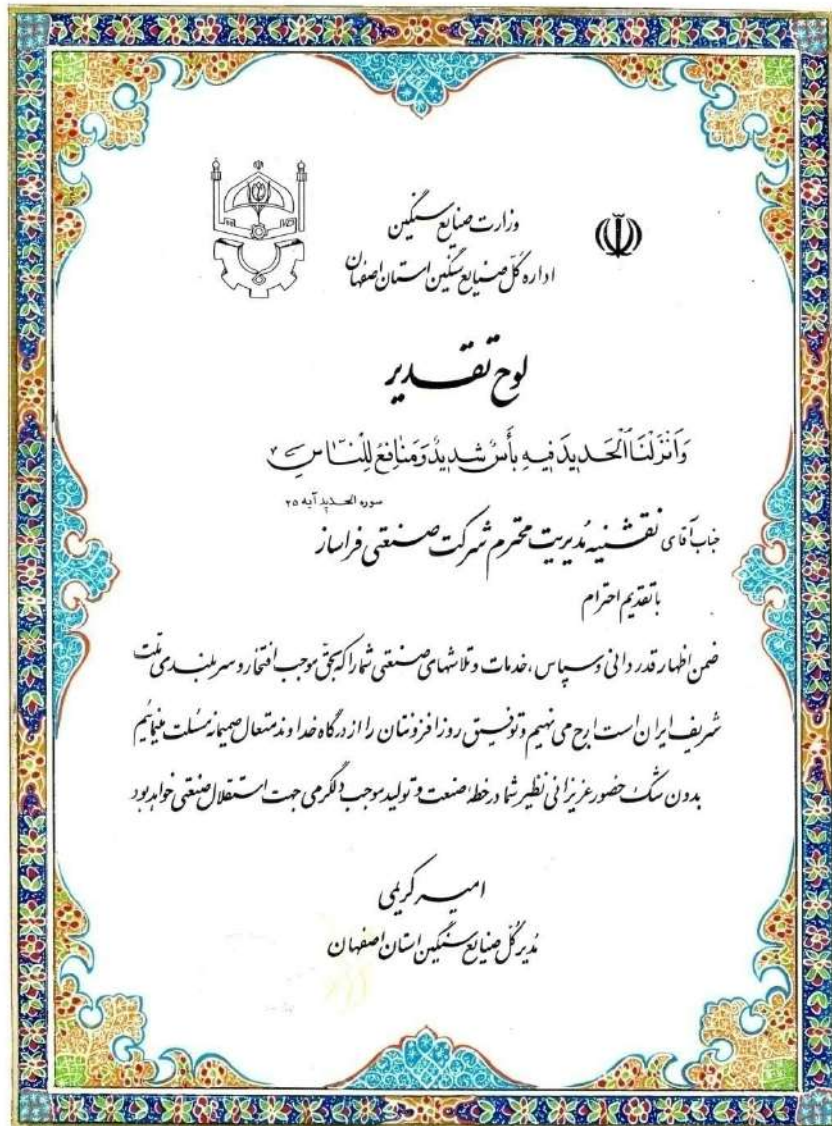 وزارت صنایع سنگین
اداره کل صنایع سنگین استان اصفهان
لوح تقدیر
وَأَنْزَلْنَا الْحَدِيدَ فِيهِ بَأْسٌ شَدِيدٌ وَمَنَافِعُ لِلنَّاسِ
سوره الحدید آیه ۲۵
جناب آقای نقشینه مدیریت محترم شرکت صنعتی فراساز
با تقدیم احترام
ضمن اظهار قدردانی و سپاس، خدمات و تلاشهای صنعتی شما را که بحق موجب افتخار و سربلندی ملت
شریف ایران است ارج می نهیم و توفیق روزافزونتان را از درگاه خداوند متعال صمیمانه مسئلت مینمائیم
بدون شک حضور عزیزانی نظیر شما در خطه صنعت و تولید موجب دلگرمی جهت استقلال صنعتی خواهد بود
امیر کریمی
مدیرکل صنایع سنگین استان اصفهان